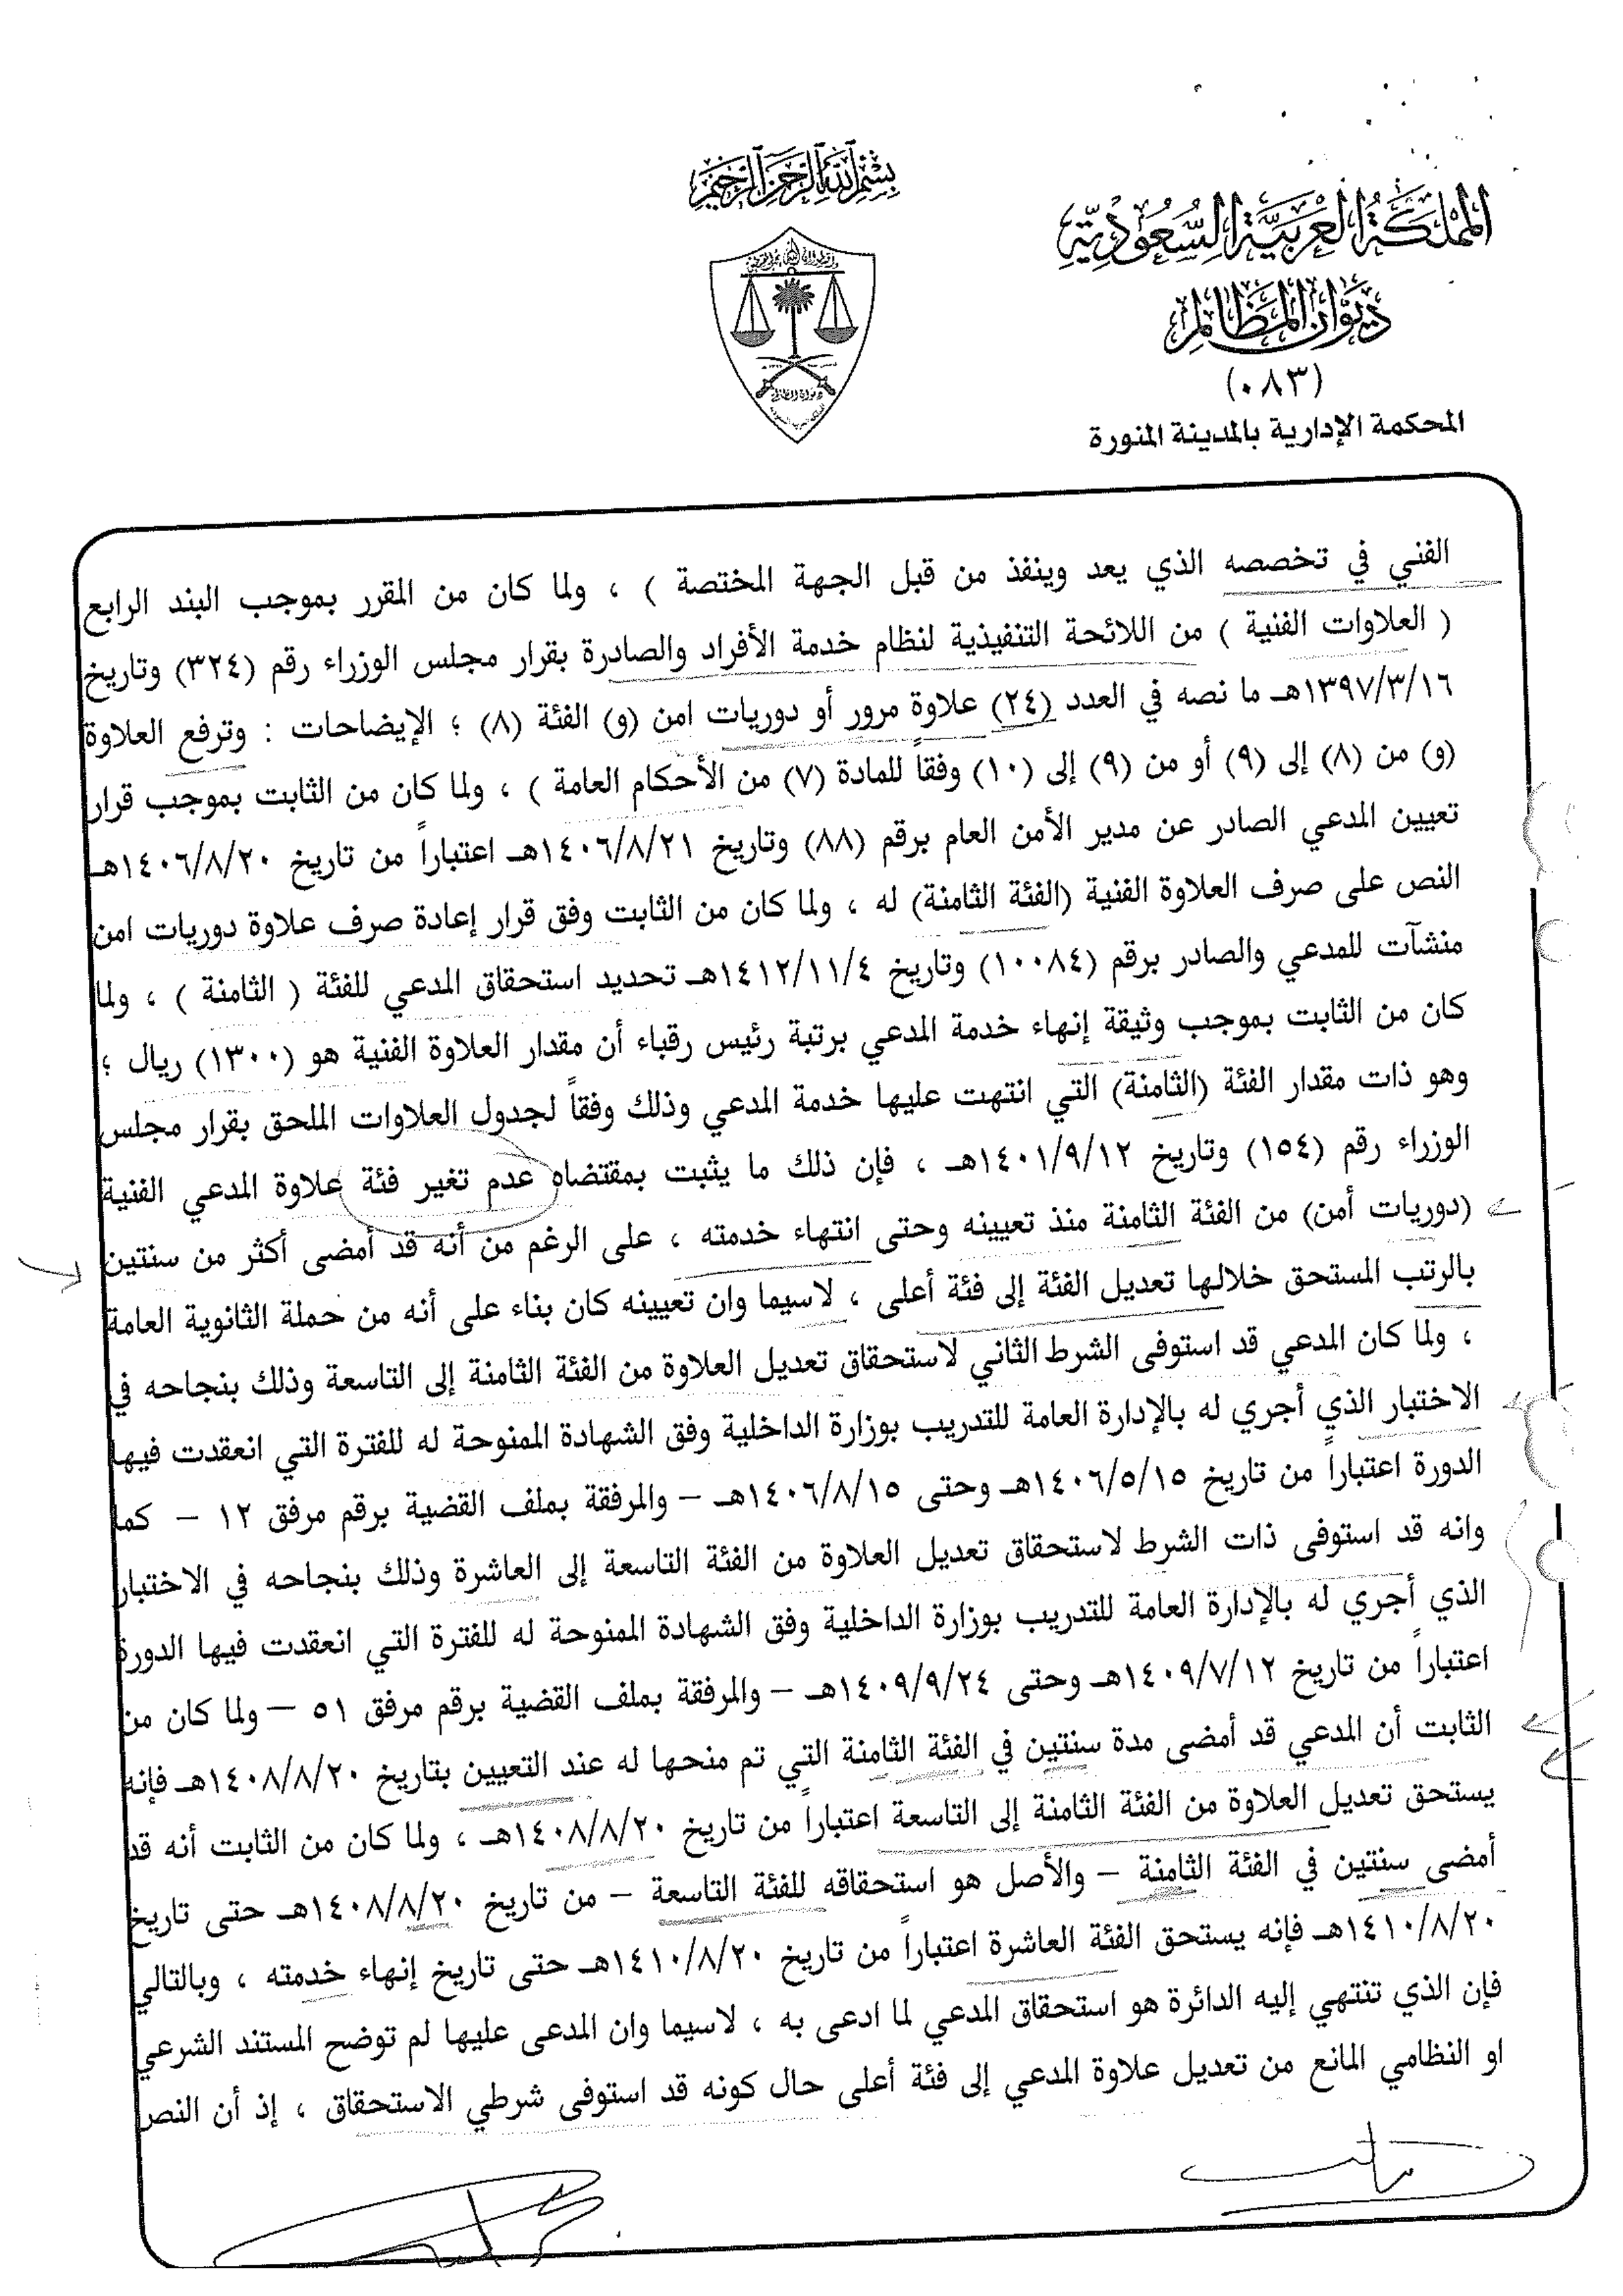 بسم الله الرحمن الرحيم
المملكة العربية السعودية
ديوان المظالم
(٠٨٣)
المحكمة الإدارية بالمدينة المنورة
ديوان المظالم
الفني في تخصصه الذي يعد وينفذ من قبل الجهة المختصة ) ، ولما كان من المقرر بموجب البند الرابع
( العلاوات الفنية ) من اللائحة التنفيذية لنظام خدمة الأفراد والصادرة بقرار مجلس الوزراء رقم (٣٢٤) وتاريخ
١٣٩٧/٣/١٦هـ ما نصه في العدد (٢٤) علاوة مرور أو دوريات امن (و) الفئة (٨) ؛ الإيضاحات : وترفع العلاوة
(و) من (٨) إلى (٩) أو من (٩) إلى (١٠) وفقاً للمادة (٧) من الأحكام العامة ) ، ولما كان من الثابت بموجب قرار
تعيين المدعي الصادر عن مدير الأمن العام برقم (٨٨) وتاريخ ١٤٠٦/٨/٢١هـ اعتباراً من تاريخ ١٤٠٦/٨/٢٠هـ
النص على صرف العلاوة الفنية (الفئة الثامنة) له ، ولما كان من الثابت وفق قرار إعادة صرف علاوة دوريات امن
منشآت للمدعي والصادر برقم (١٠٠٨٤) وتاريخ ١٤١٢/١١/٤هـ تحديد استحقاق المدعي للفئة ( الثامنة ) ، ولما
كان من الثابت بموجب وثيقة إنهاء خدمة المدعي برتبة رئيس رقباء أن مقدار العلاوة الفنية هو (١٣٠٠) ريال ؛
وهو ذات مقدار الفئة (الثامنة) التي انتهت عليها خدمة المدعي وذلك وفقاً لجدول العلاوات الملحق بقرار مجلس
الوزراء رقم (١٥٤) وتاريخ ١٤٠١/٩/١٢هـ ، فإن ذلك ما يثبت بمقتضاه عدم تغير فئة علاوة المدعي الفنية
(دوريات أمن) من الفئة الثامنة منذ تعيينه وحتى انتهاء خدمته ، على الرغم من أنه قد أمضى أكثر من سنتين
بالرتب المستحق خلالها تعديل الفئة إلى فئة أعلى ، لاسيما وان تعيينه كان بناء على أنه من حملة الثانوية العامة
، ولما كان المدعي قد استوفى الشرط الثاني لاستحقاق تعديل العلاوة من الفئة الثامنة إلى التاسعة وذلك بنجاحه في
الاختبار الذي أجري له بالإدارة العامة للتدريب بوزارة الداخلية وفق الشهادة الممنوحة له للفترة التي انعقدت فيها
الدورة اعتباراً من تاريخ ١٤٠٦/٥/١٥هـ وحتى ١٤٠٦/٨/١٥هـ – والمرفقة بملف القضية برقم مرفق ١٢ – كما
وانه قد استوفى ذات الشرط لاستحقاق تعديل العلاوة من الفئة التاسعة إلى العاشرة وذلك بنجاحه في الاختبار
الذي أجري له بالإدارة العامة للتدريب بوزارة الداخلية وفق الشهادة الممنوحة له للفترة التي انعقدت فيها الدورة
اعتباراً من تاريخ ١٤٠٩/٧/١٢هـ وحتى ١٤٠٩/٩/٢٤هـ – والمرفقة بملف القضية برقم مرفق ٥١ – ولما كان من
الثابت أن المدعي قد أمضى مدة سنتين في الفئة الثامنة التي تم منحها له عند التعيين بتاريخ ١٤٠٨/٨/٢٠هـ فإنه
يستحق تعديل العلاوة من الفئة الثامنة إلى التاسعة اعتباراً من تاريخ ١٤٠٨/٨/٢٠هـ ، ولما كان من الثابت أنه قد
أمضى سنتين في الفئة الثامنة – والأصل هو استحقاقه للفئة التاسعة – من تاريخ ١٤٠٨/٨/٢٠هـ حتى تاريخ
١٤١٠/٨/٢٠هـ فإنه يستحق الفئة العاشرة اعتباراً من تاريخ ١٤١٠/٨/٢٠هـ حتى تاريخ إنهاء خدمته ، وبالتالي
فإن الذي تنتهي إليه الدائرة هو استحقاق المدعي لما ادعى به ، لاسيما وان المدعى عليها لم توضح المستند الشرعي
او النظامي المانع من تعديل علاوة المدعي إلى فئة أعلى حال كونه قد استوفى شرطي الاستحقاق ، إذ أن النص